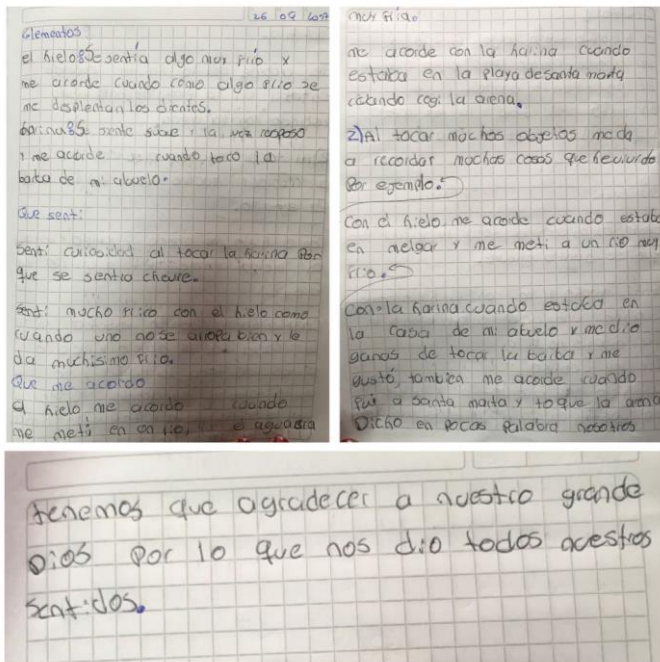 26 09 
Elementos
el hielo: Se sentía algo muy frio y
me acorde cuando como algo frio se
me desplentan los dientes.
harina: Se siente suave y la vez rasposo
y me acorde cuando toco la
barba de mi abuelo.
Que senti:
Senti curiosidad al tocar la harina Por
que se sentia chevre.
Senti mucho frico con el hielo como
cuando uno nose arropa bien y le
da muchisimo frio.
Que me acordo
el hielo me acordo cuando
me meti en un rio, el agua era
muy frida
me acorde con la harina cuando
estaba en la playa de santa marta
cuando cogi la arena.
2) Al tocar muchos objetos me da
a reccordar muchas cosas que he vivido
Por ejemplo:
Con el hielo me acorde cuando estaba
en melgar y me meti a un rio muy
frio.
Con la harina cuando estaba en
la casa de mi abuelo y me dio
ganas de tocar la barba y me
gustó, tambien me acorde cuando
fui a santa marta y toque la arena
Dicho en pocas Palabra nosotros
tenemos que agradecer a nuestro grande
Dios Por lo que nos dio todos nuestros
sentidos.